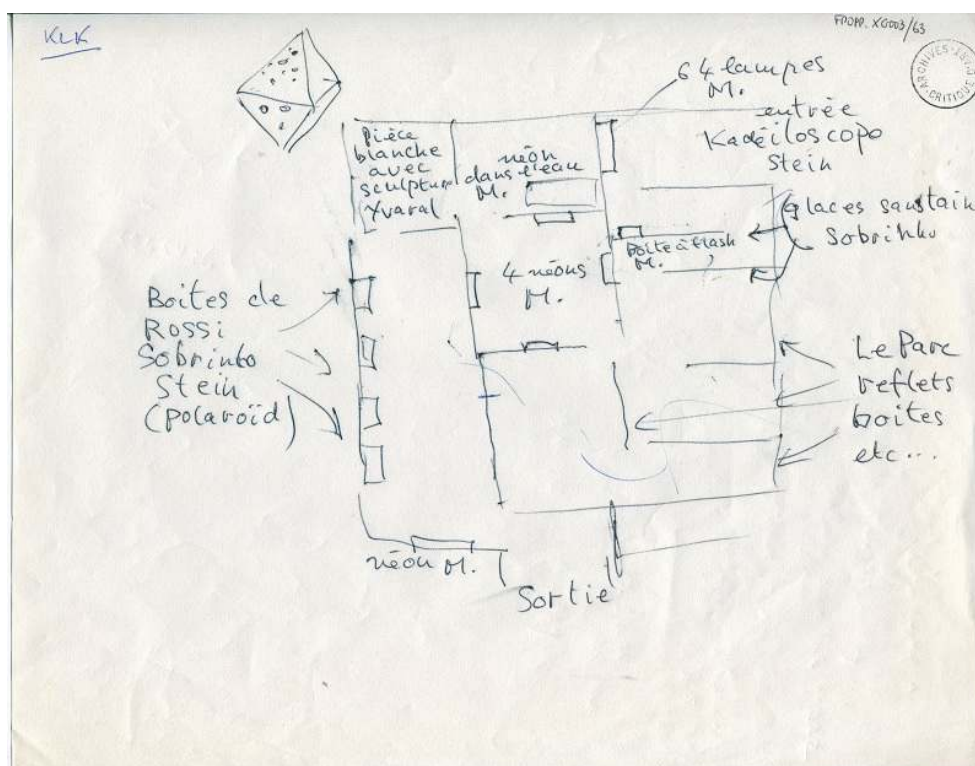 KLK
FPOPP. XG003/63
ARCHIVES
CRITIQUE
64 lampes
M.
entrée
Kadéiloscopo
Stein
Pièce
blanche
avec
sculpture
Yvaral
néon
dans l'eau
M.
Glaces sanstain
Sobrinko
boîte à flash
M.
4 néons
M.
Boites de
Rossi
Sobrinko
Stein
(polaroïd)
Le Parc
reflets
boites
etc...
néon M.
Sortie